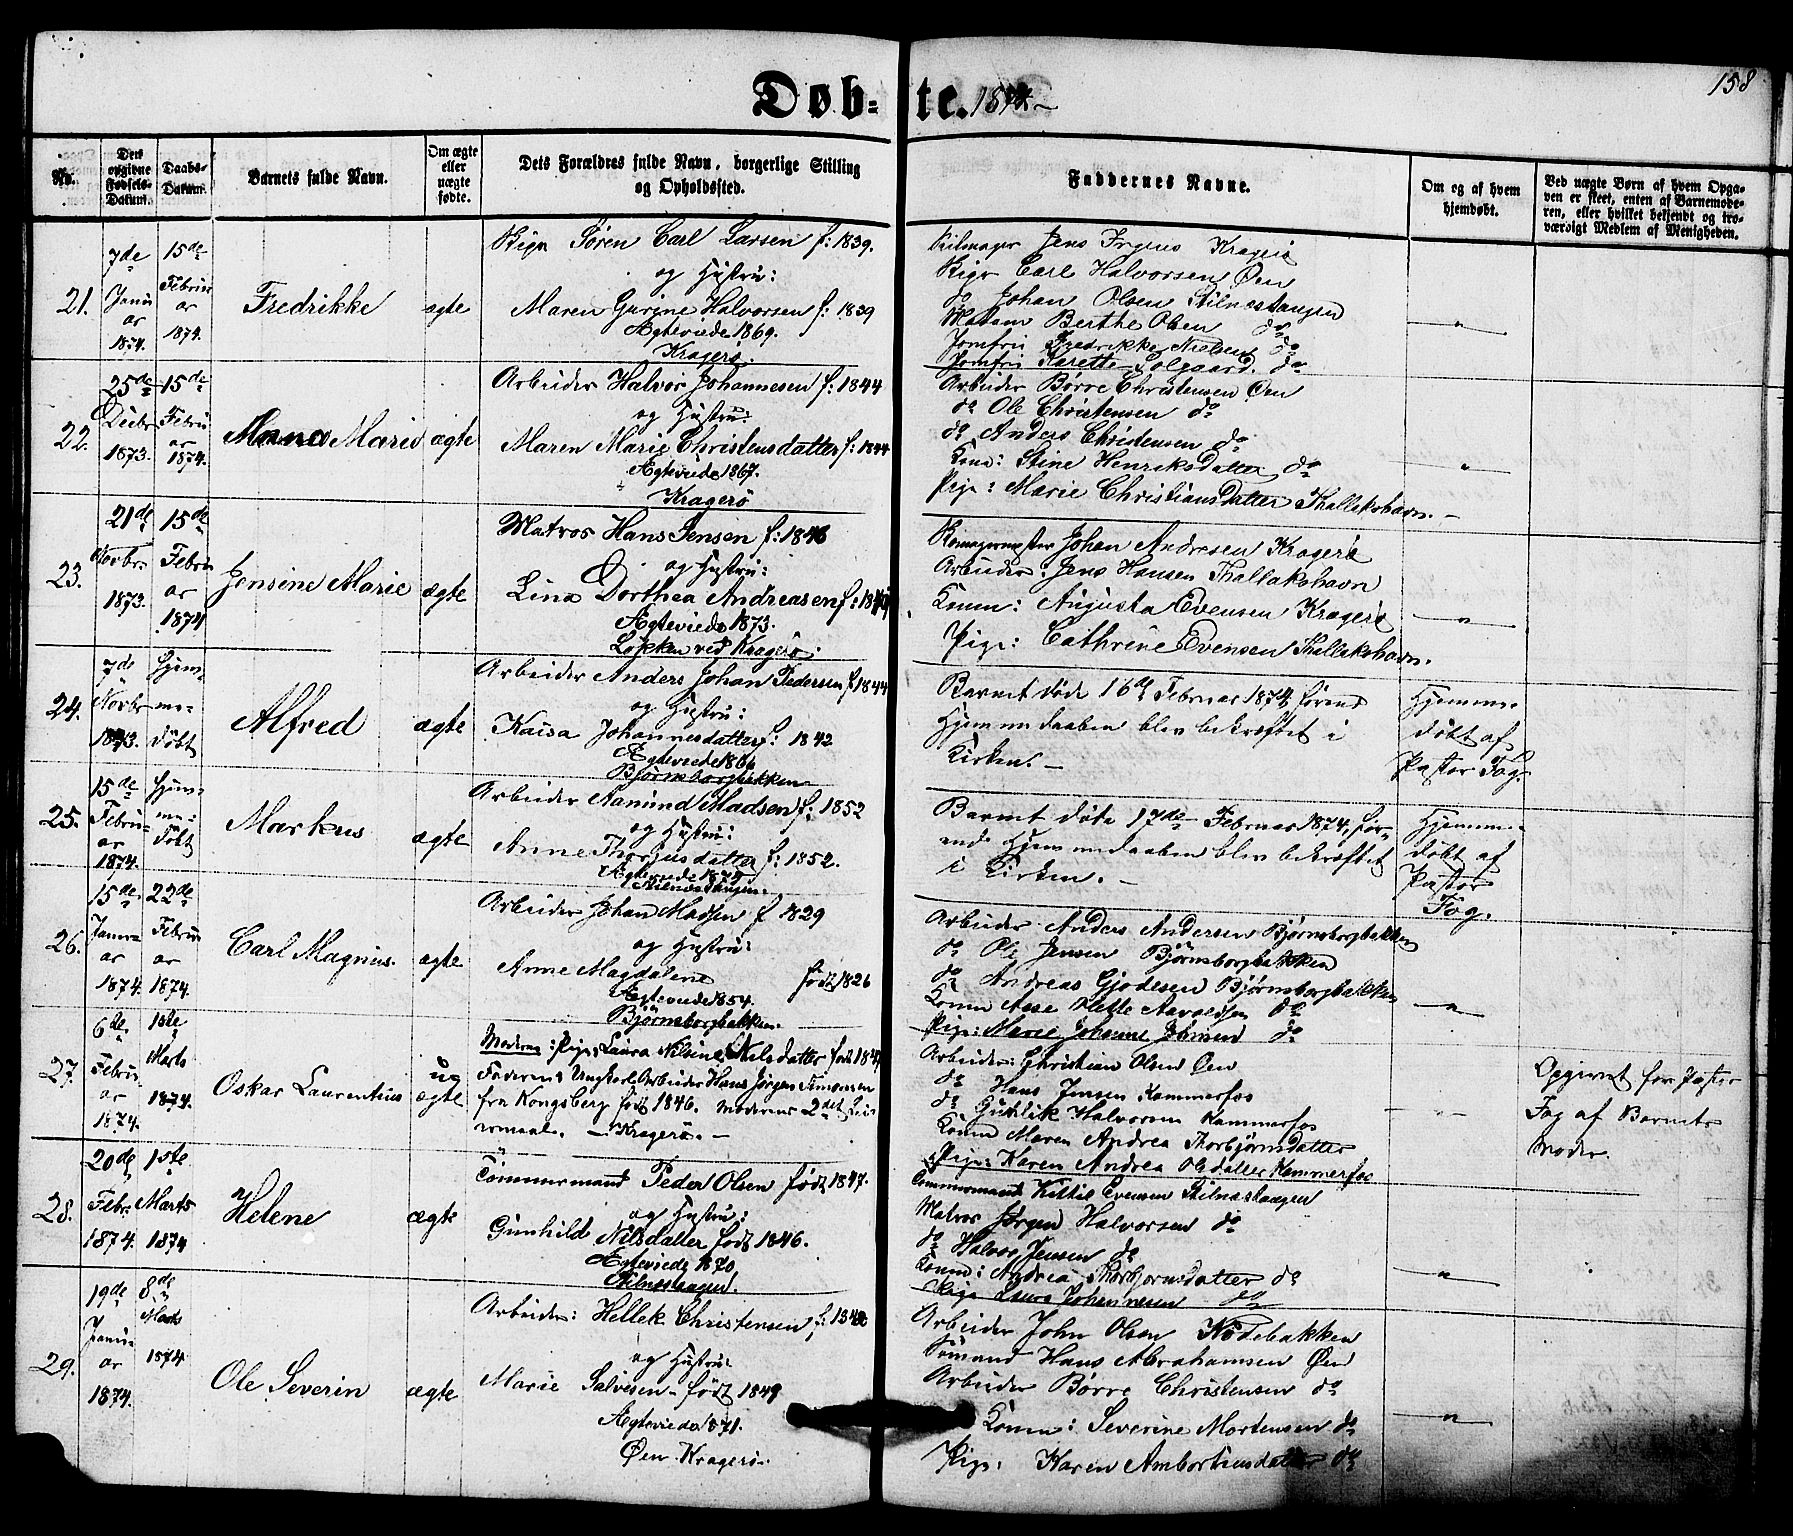 158
Døb-te. 1874.
No.
Den opgivne Fødsels-Datum.
Daabs-Datum.
Barnets fulde Navn.
Om ægte eller uægte fødte.
Dets Forældres fulde Navn, borgerlige Stilling og Opholdssted.
Faddernes Navne.
Om og af hvem hjemdøbt.
Ved uægte Børn af hvem Opgaven er skeet, enten af Barnemoderen, eller hvilket bekjendt og troværdigt Medlem af Menigheden.
21.
7de Januar 1874.
15de Februar 1874.
Fredrikke
ægte
Søren Carl Larsen f: 1839.
og Hustru:
Maren Gurine Halvorsen f: 1839
Ægteviede 1869.
Kragerø.
Jens Kragerø
Carl Halvorsen Øen
do Johan Olsen Stilnestangen
Madam Berthe Olsen do
Jomfru Fredrikke Nielsen do
Jomfru Karette Solgaard. do
"
22.
25de Decbr 1873.
15de Februar 1874.
Marie
ægte
Arbeider Halvor Johannesen f: 1844
og Hustru:
Maren Marie Christensdatter f: 1844
Ægteviede 1867.
Kragerø
Arbeider Børre Christensen Øen
do Ole Christensen do
do Anders Christensen do
Kone: Stine Henriksdatter do
Pige: Marie Christiansdatter Thallakshavn.
"
23.
21de Novbr 1873.
15de Februar 1874
Jensine Marie
ægte
Matros Hans Jensen f: 1846
og Hustru:
Lina Dorthea Andreasen
Ægteviede 1873.
Løkken ved Kragerø.
Skomagermester Johan Andresen Kragerø
Arbeider Jens Hansen Thallakshavn
Konen: Augusta Evensen Kragerø
Pige: Cathrine Evensen Thallakshavn.
"
24.
7de Novbr 1873.
hjemmedøbt
Alfred
ægte
Arbeider Anders Johan Pedersen f: 1844
og Hustru:
Kaisa Johannesdatter f: 1842
Ægteviede
Bjørnsborgbakken
Barnet døde 16de Februar 1874, førend
Hjemmedaaben blev bekræftet i
Kirken.
Hjemmedøbt af Pastor Fog.
25.
15de Februar 1874.
hjemmedøbt
Markus
ægte
Arbeider Aanund Madsen f: 1852
og Hustru:
Anne Thorjusdatter f: 1852.
Ægteviede
Stilnestangen.
Barnet døde 17de Februar 1874, førende Hjemmedaaben blev bekræftet
i Kirken.
Hjemmedøbt af Pastor Fog.
26.
15de Januar 1874.
22de Februar 1874.
Carl Magnus.
ægte
Arbeider Johan Madsen f 1829
og Hustru:
Anne Magdalene født 1826
Ægteviede 1854.
Bjørnsborgbakken.
Arbeider Anders Andersen Bjørnsborgbakken
do Ole Jensen Bjørnsborgbakken
do Andreas Gjodesen Bjørnsborgbakken
do
Pige: Marie Johanne Johnsen do
"
27.
6te Februar 1874.
1ste Marts 1874.
Oskar Laurentius
uægte
Moderen: Pige Laura Nilsine Nilsdatter
Faderen: Ungkarl Arbeider Hans Jørgen Simonsen
fra Kongsberg født 1846. Moderens 2det Leiermaal. Kragerø.
Arbeider: Christian Olsen Øen
do Hans Jensen Kammerfos
do Gunlik Halvorsen Kammerfos
Konen Maren Andrea Thorbjørnsdatter
Pige: Karen Andrea Olsdatter Kammerfos
"
Opgivet for Pastor
Fog af Barnets
Moder.
28.
20de Febr. 1874.
1ste Marts 1874
Helene
ægte
Tømmermand Peder Olsen født 1847.
og Hustru:
Gunhild Nilsdatter født 1846.
Ægteviede 1870
Stilnestangen.
Tømmermand Kittil Evensen Stilnestangen
Matros Jørgen Halvorsen do
do Halvor Jensen do
Konen: Andrea Thorbjørnsdatter do
Pige Laura Johannesen do
"
29.
19de Januar 1874.
8de Marts 1874
Ole Severin
ægte
Arbeider: Hellek Christensen
og Hustru:
Marie Salvesen født 1849
Ægteviede 1871.
Øen Kragerø.
Arbeider John Olsen Kodebakken
Sømand Hans Abrahamsen Øen
Arbeider Børre Christensen do
Konen: Severine Mortensen do
Pige: Karen Ambortiusdatter do
"